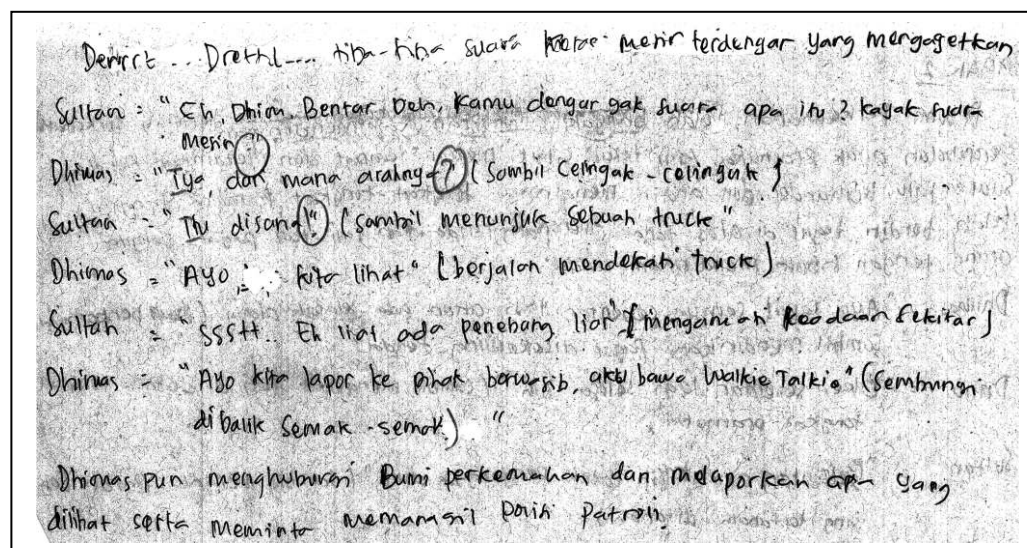 Derrrt ... Drettt.... tiba-tiba suara mesin terdengar yang mengagetkan
Sultan = "Eh, Dhim. Bentar Deh, Kamu dengar gak suara apa itu? kayak suara
mesin."
Dhimas = "Iya, dari mana arahnya? (Sambil Celingak-celinguk)
Sultan = "Itu disana!" (sambil menunjuk sebuah truck"
Dhimas = "Ayo, kita lihat" (berjalan mendekati truck)
Sultan = "sssttt.. Eh liat ada penebang liar" (mengamati keadaan sekitar)
Dhimas = "Ayo kita lapor ke pihak berwajib, aku bawa Walkie Talkie" (Sembunyi
dibalik semak-semak) "
Dhimas pun menghubungi Bumi perkemahan dan melaporkan apa yang
dilihat serta meminta memanggil polisi Patroli.